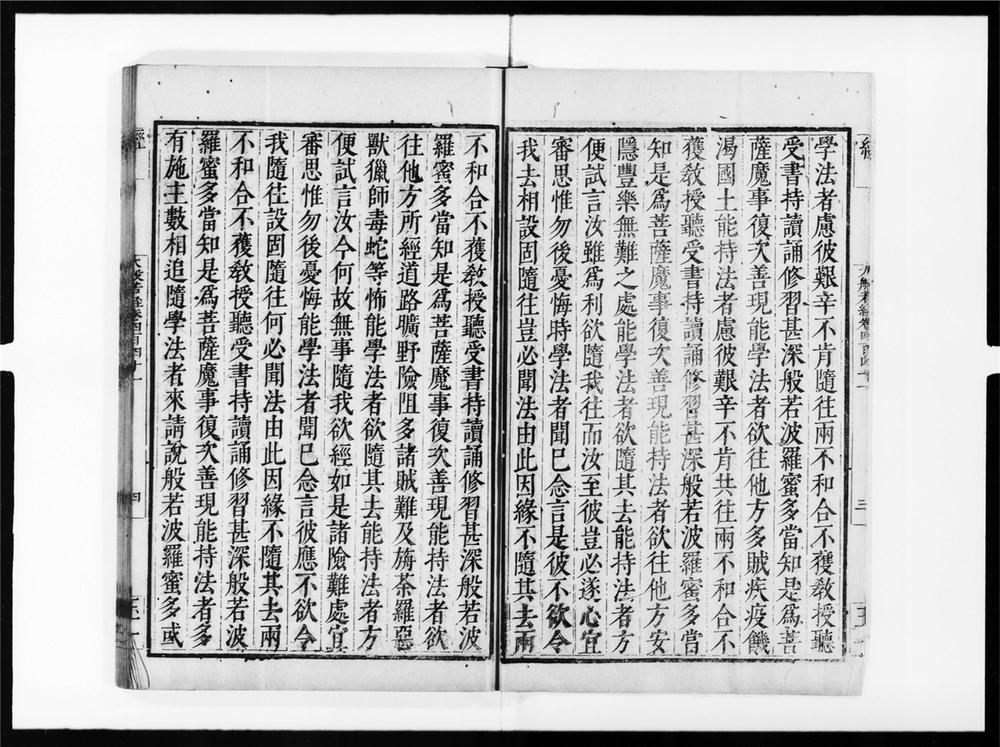 學法者慮彼艱辛不肯隨往兩不和合不獲教授聽
受書持讀誦修習甚深般若波羅蜜多當知是爲菩
薩魔事復次善現能學法者欲往他方多賊疾疫饑
渴國土能持法者慮彼艱辛不肯共往兩不和合不
獲教授聽受書持讀誦修習甚深般若波羅蜜多當
知是爲菩薩魔事復次善現能持法者欲往他方安
隱豐樂無難之處能學法者欲隨其去能持法者方
便試言汝雖爲利欲隨我往而汝至彼豈必遂心宜
審思惟勿後憂悔時學法者聞已念言是彼不欲令
我去相設固隨往豈必聞法由此因緣不隨其去兩
不和合不獲教授聽受書持讀誦修習甚深般若波
羅蜜多當知是爲菩薩魔事復次善現能持法者欲
往他方所經道路曠野險阻多諸賊難及旃荼羅惡
獸獵師毒蛇等怖能學法者欲隨其去能持法者方
便試言汝今何故無事隨我欲經如是諸險難處宜
審思惟勿後憂悔能學法者聞已念言彼應不欲令
我隨往設固隨往何必聞法由此因緣不隨其去兩
不和合不獲教授聽受書持讀誦修習甚深般若波
羅蜜多當知是爲菩薩魔事復次善現能持法者多
有施主數相追隨學法者來請說般若波羅蜜多或